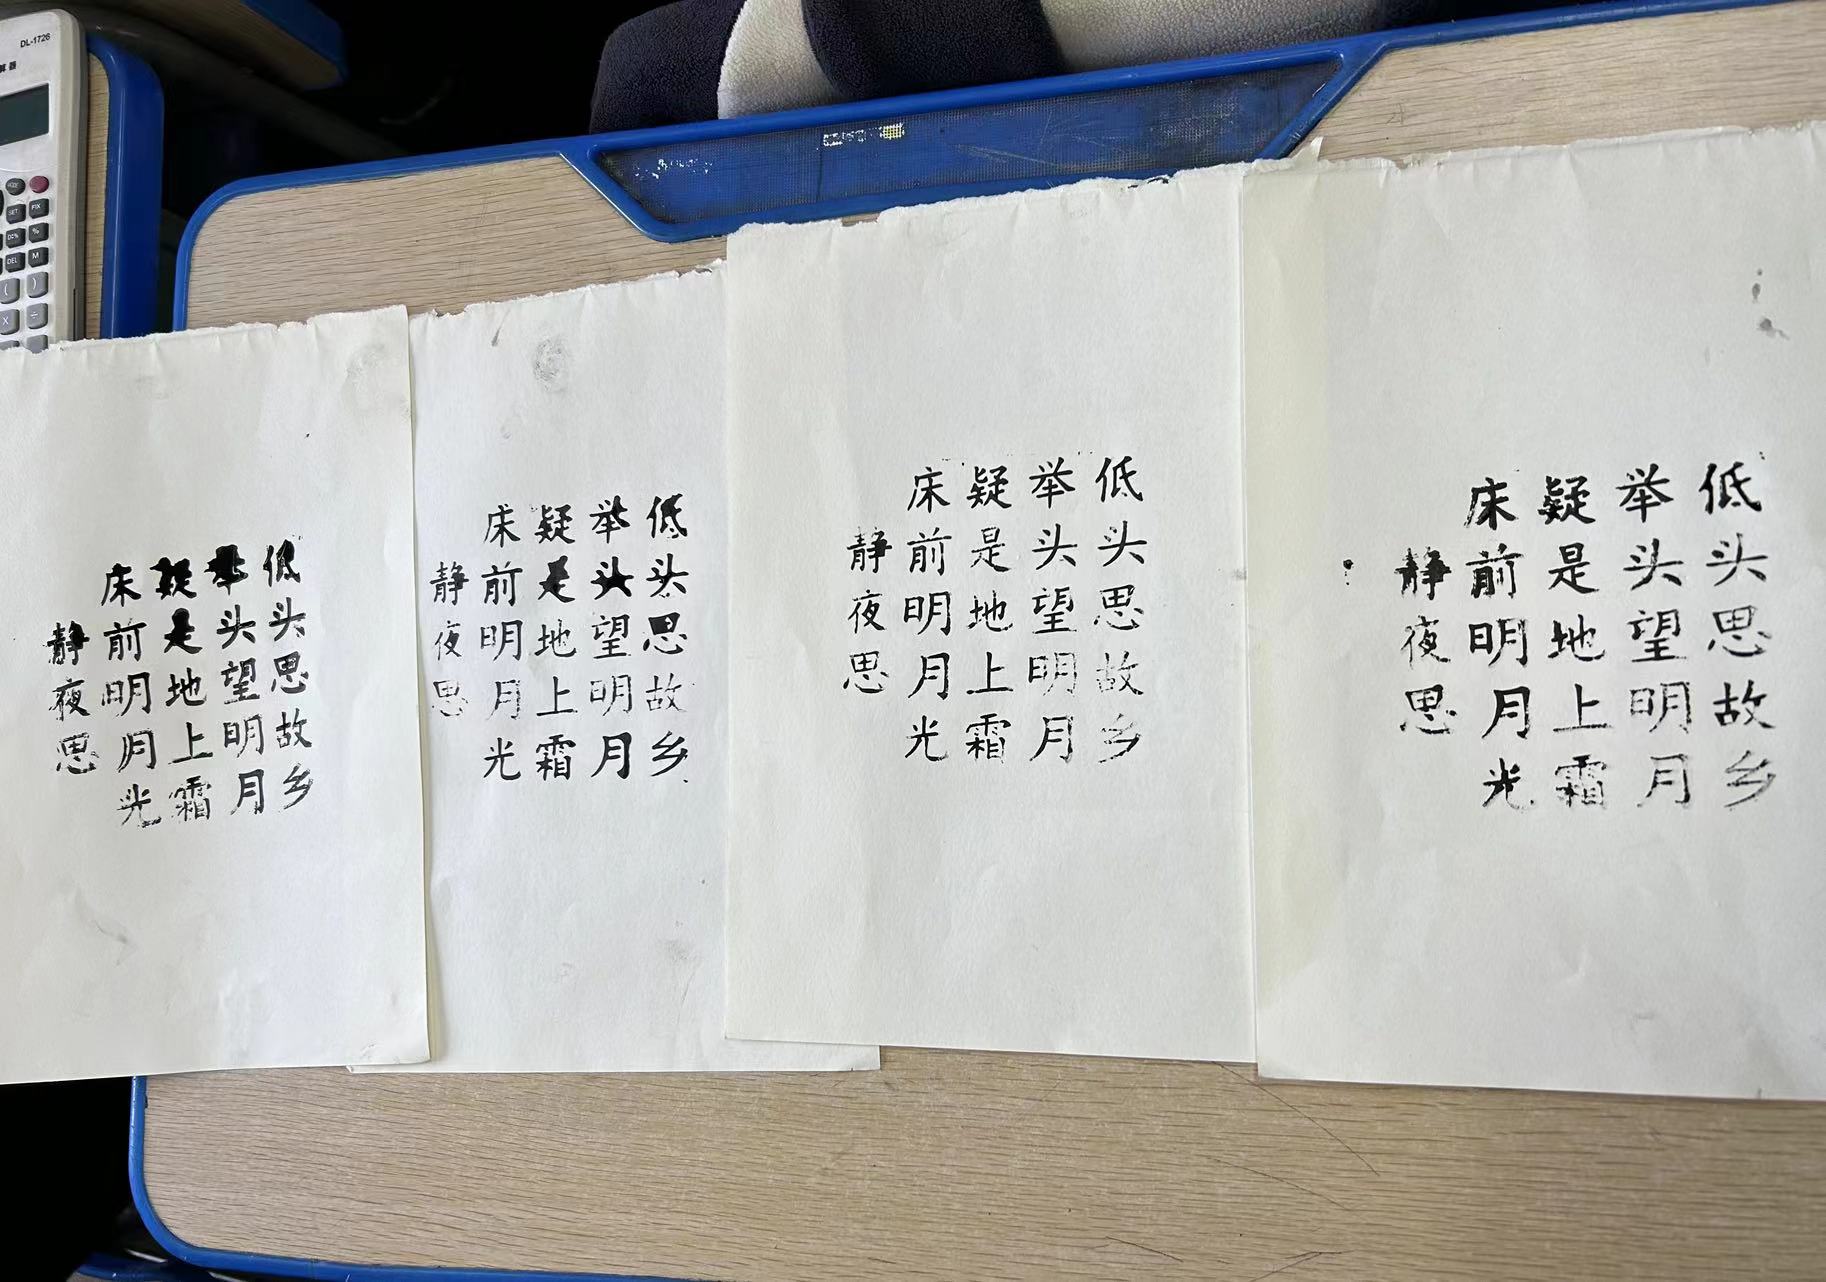 DL-1726
SET FIX
%
DEL M
( )
X ÷
静夜思
床前明月光
疑是地上霜
举头望明月
低头思故乡
静夜思
床前明月光
疑是地上霜
举头望明月
低头思故乡
静夜思
床前明月光
疑是地上霜
举头望明月
低头思故乡
静夜思
床前明月光
疑是地上霜
举头望明月
低头思故乡